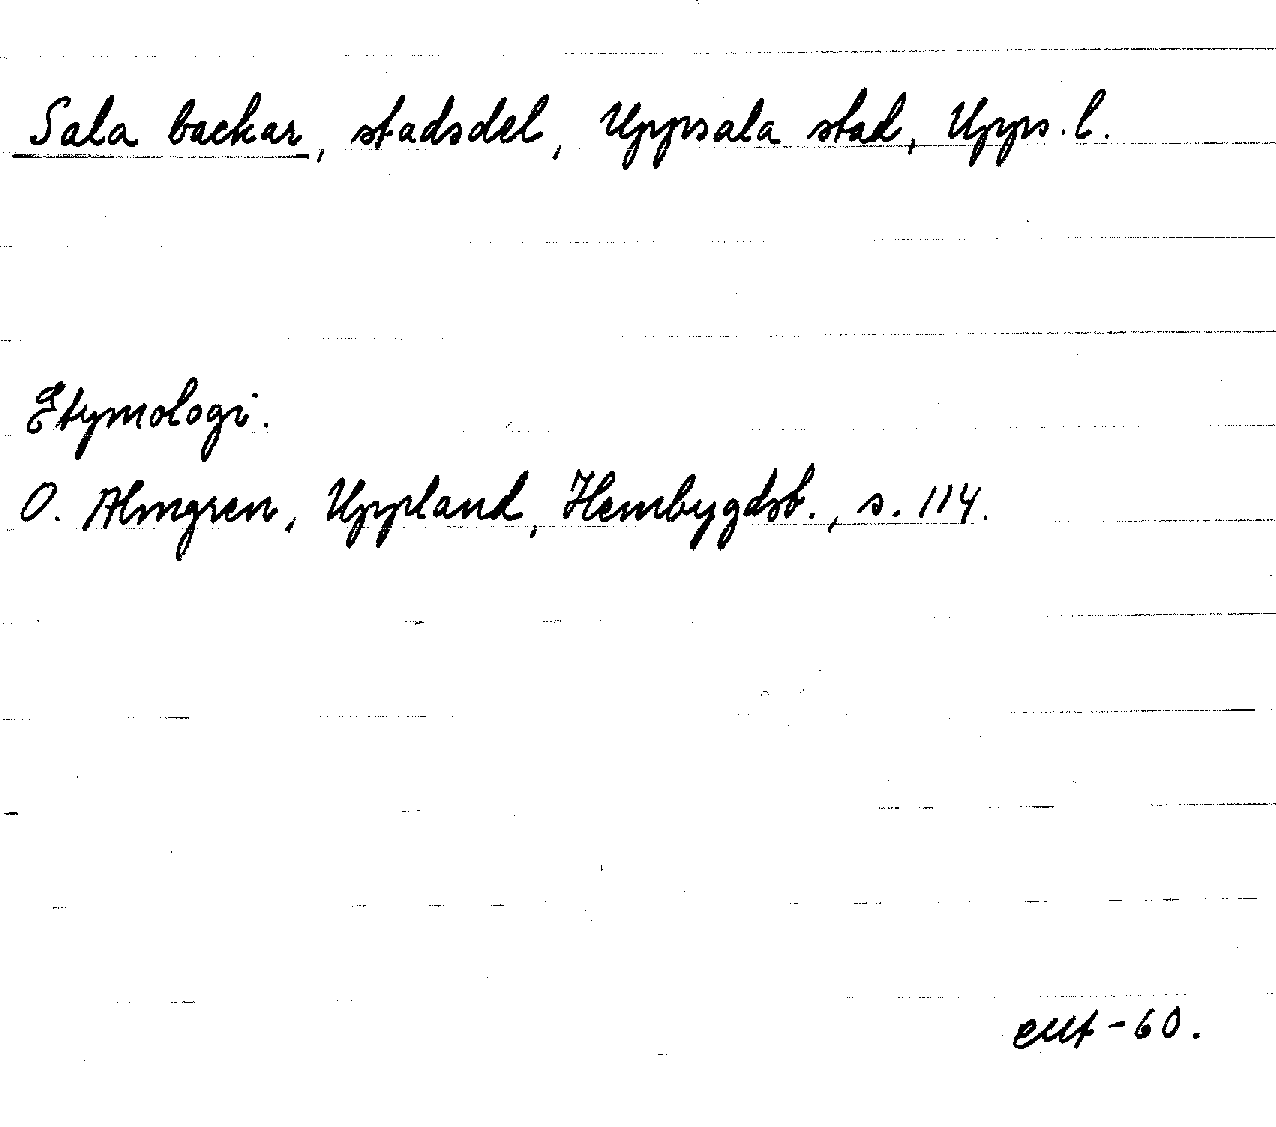 Sala backar, stadsdel, Uppsala stad, Upps. l.
Etymologi.
O. Almgren, Uppland, Hembygdsb., s. 114.
-60.